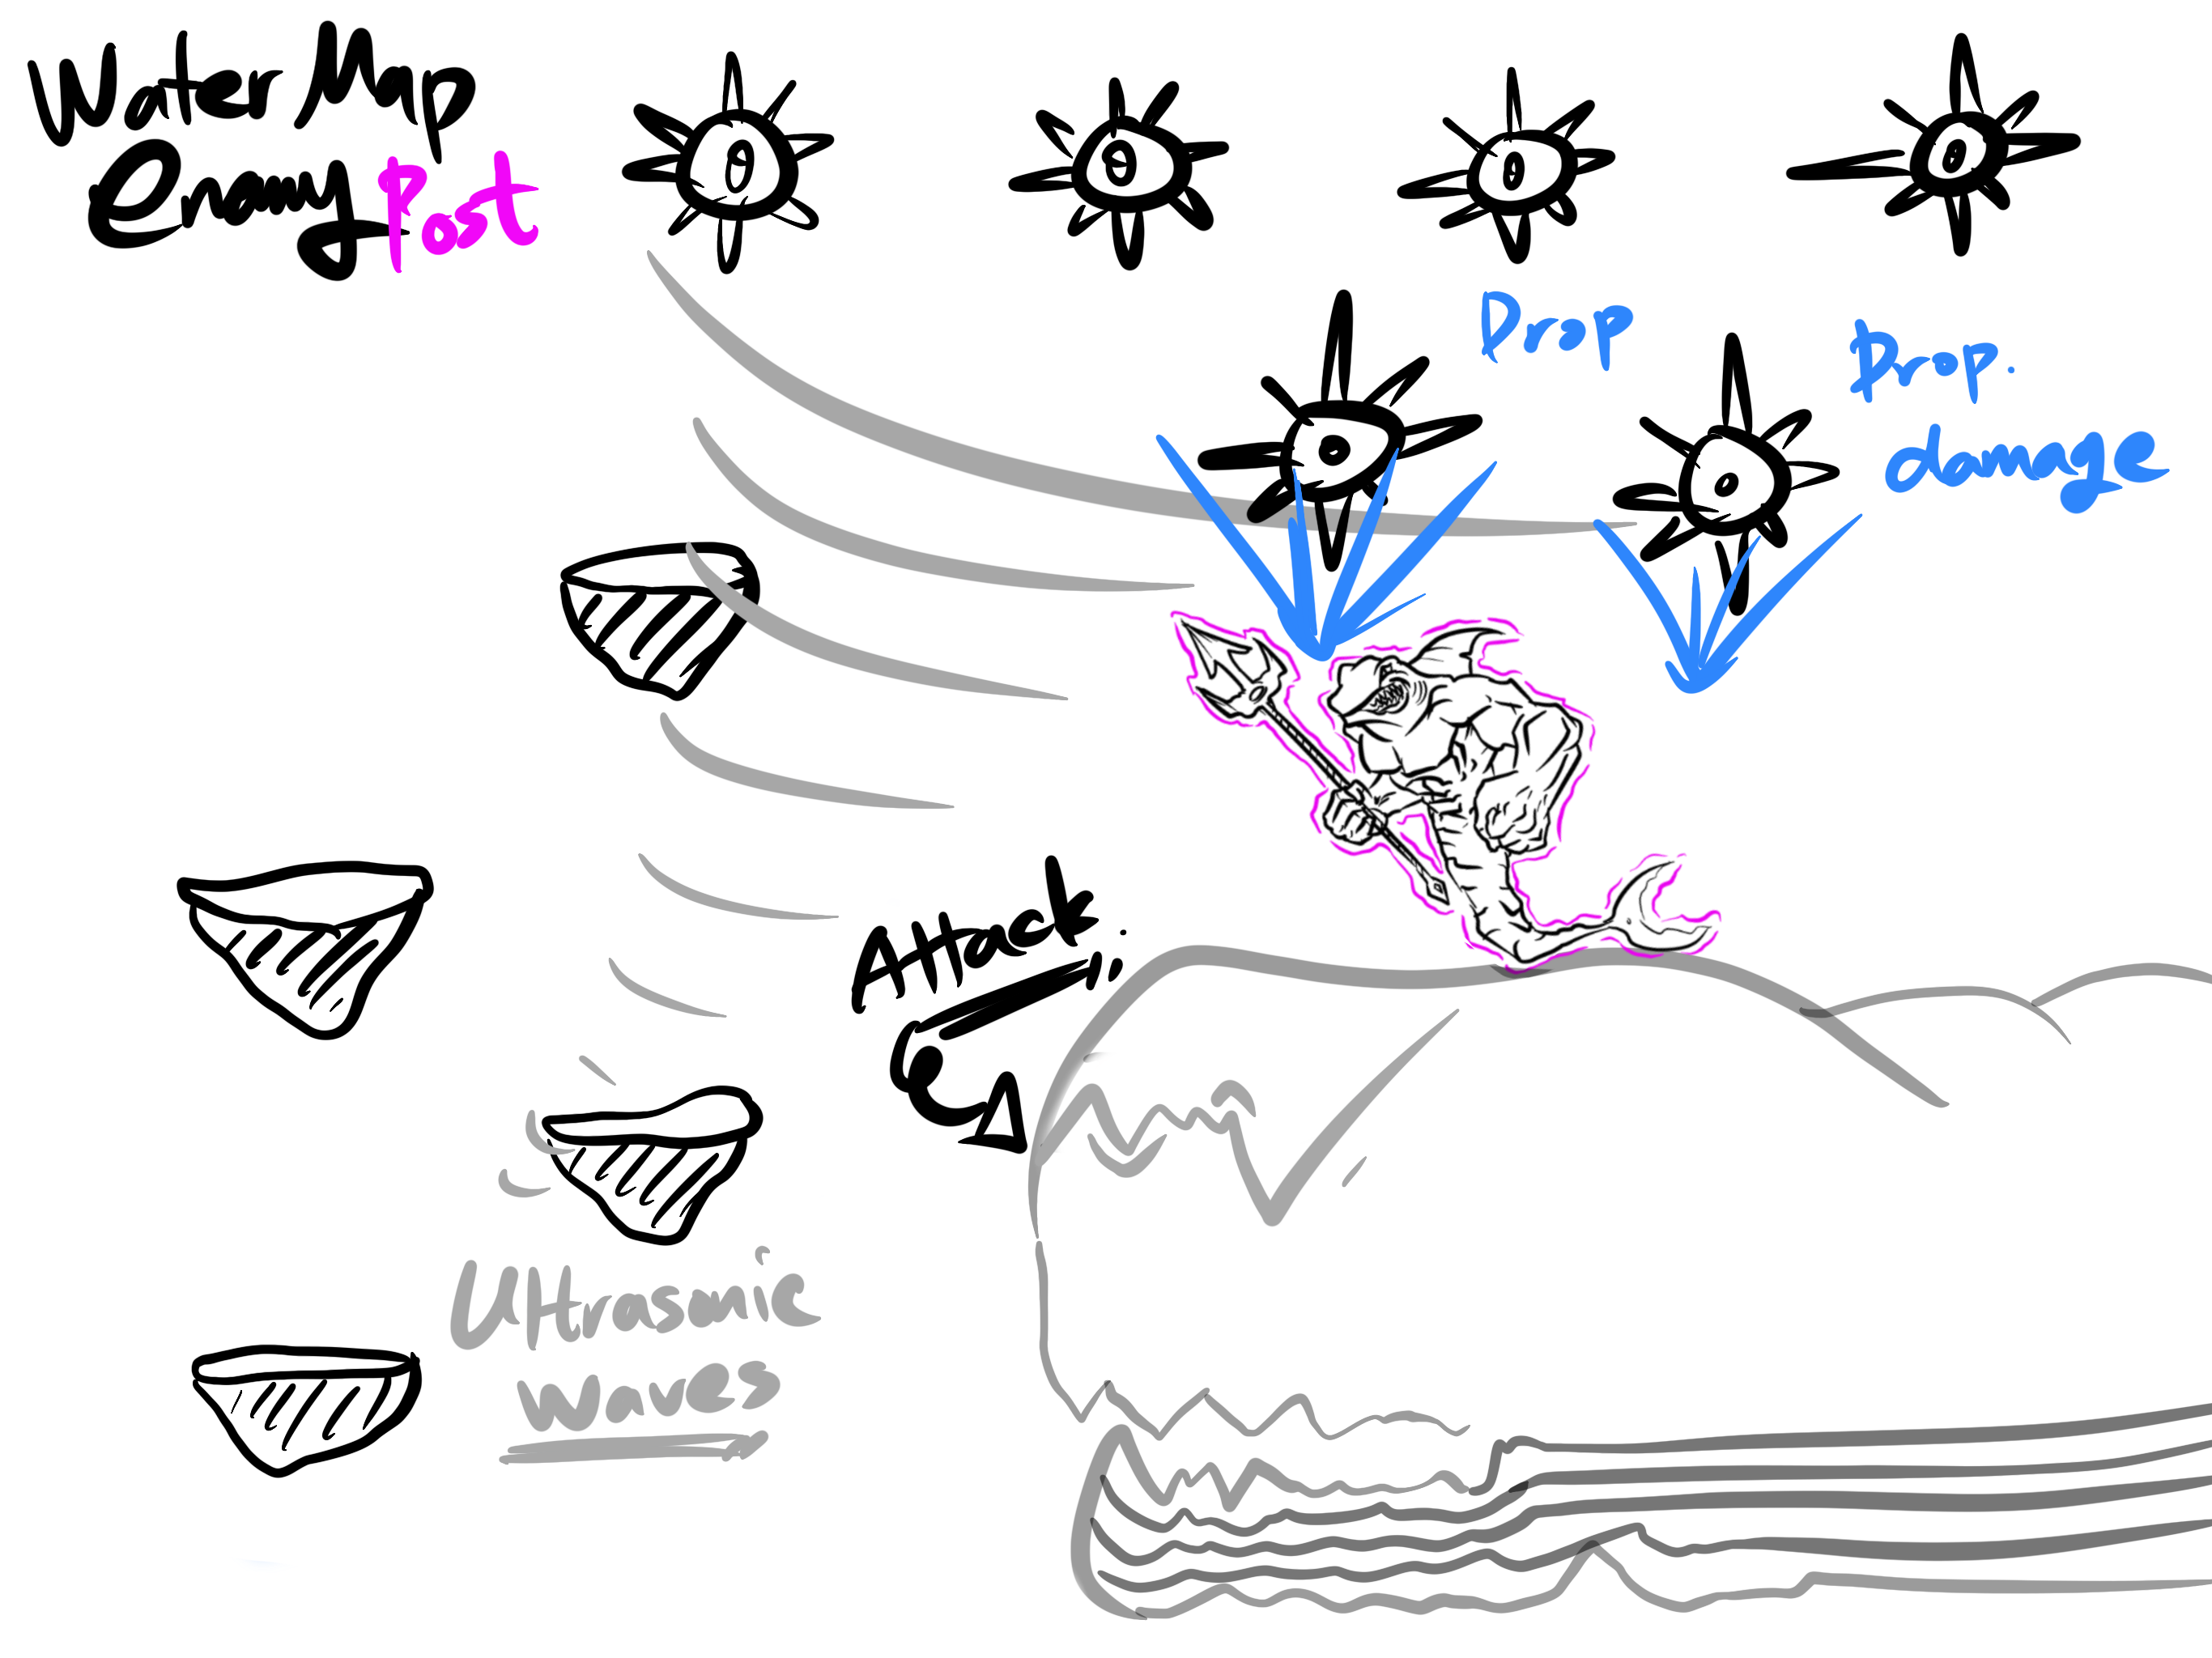 Water Map
Enemy Post
Drop
Drop.
damage
Attack.
Ultrasonic
waves